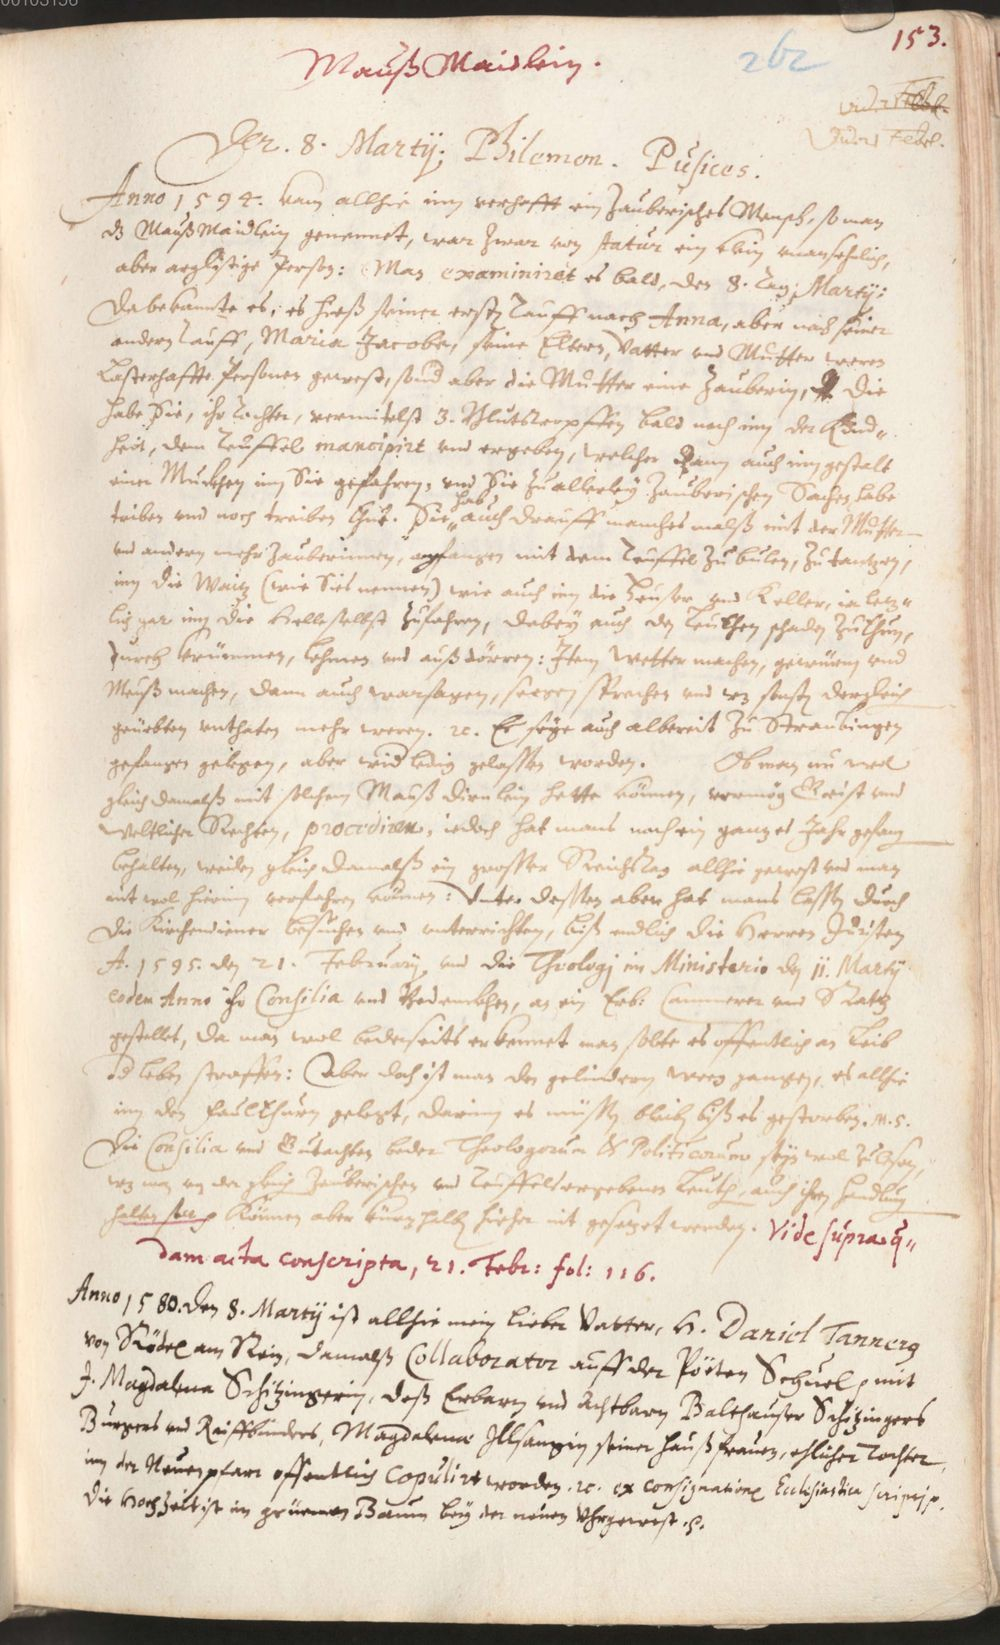 00103156
153.
Mauß Maidlein.
262
vide Febr.
Der. 8. Martÿ; Philemon. Pusices.
Anno 1594. kam allhie inn verhafft ein Zauberisches Mensch, so man
dz Mauß Maidlein genennet, war zwar von statur ein klein unansehlich,
aber arglistige Person: Man examiniret es bald, den 8. tag Martÿ;
Da bekannte es, es hieß seiner ersten Tauff nach Anna, aber nach seiner
andern Tauff, Maria Jacobe, seine Eltern, Vatter und Mutter weren
Lasterhaffte Personen gewest, sond aber die Mutter eine Zauberin, Die
habe Sie, ihr Tochter, vermitelst 3. Blutstropffen bald nach inn der Kind„
heit, dem Teuffel mancipirt und ergeben, welcher dann auch inn gestalt
einer Mucken inn Sie gefahren, und Sie zu allerleÿ Zauberischen Sachen habe
triben und noch treiben thue. Sie hab auch drauff manches malß mit der Mutter
und andern mehr Zauberinnen, angfangen mit dem Teuffel zu bulen, zu tantzen,
inn die Waitz (wie Sies nennen) wie auch inn die Heuser und Keller, ia letz„
lich gar inn die Helle selbst zufahren, dabeÿ auch den Leuthen schaden zuthun,
durch krümmen, lehmen und außdörren: Item Wetter machen, gewürm und
Meuß machen, dann auch warsagen, seegen sprechen und wz sonsten dergleich
geüebten unthaten mehr weren. ec. Er seÿe auch albereit zu Straubingen
gefangen gelegen, aber wid ledig gelassen worden. Ob man nu wol
gleich damalß mit solchem Mauß dirnlein hette können, vermög Geist und
Weltlicher Rechten, procediren, iedoch hat mans noch ein gantzes Jahr gefang
behalten, weilen gleich damalß ein grosser Reichstag allhie gewest und man
nit wol hierinn verfahren können: Unter dessen aber hat mans lassen durch
die Kirchendiener besuchen und unterrichten, biß endlich die Herren Juristen
A. 1595. den 21. Februarÿ, und die Theologi im Ministerio den 11. Martÿ
eodem Anno ihr Consilia und Bedencken, an ein Erb: Cammerer und Rath
gestellet, da man wol bederseits erkennet man solte es offentlich an Leib
od leben straffen: Aber doch ist man den gelindern weeg gangen, es allhie
inn den faulthurn gelegt, darinn es müssen bleiben biß es gestorben. M.S.
Die Consilia und Gutachten beder Theologorum & Politicorum seÿn wol zulesen,
wz man von der gleich Zauberischen und Teuffelsergebenen Leuth, auch ihren handlung
halten soll, Können aber kürz halb hieher nit gesetzet werden. Vide supra q„
dam acta conscripta, 21. Febr: fol: 116.
Anno 1580. Den 8. Martÿ ist allhie mein lieber Vatter, H. Daniel Tanner
von Rötel am Rein, damalß Collaborator auff der Pöeten Schuel, mit
J. Magdalena Schitzingerin, deß Erbarn und Achtbarn Balthauser Schitzingers
Burgers und Reiffbinders, Magdalena Illsangin seiner Haußfrauen, ehlicher Tochter,
inn der Neuenpfarr offentlich Copulirt worden. ec. ex consignatione Ecclesiastica
die Hochzeit ist im grüenen Baum beÿ der neuen Uhr gewest.